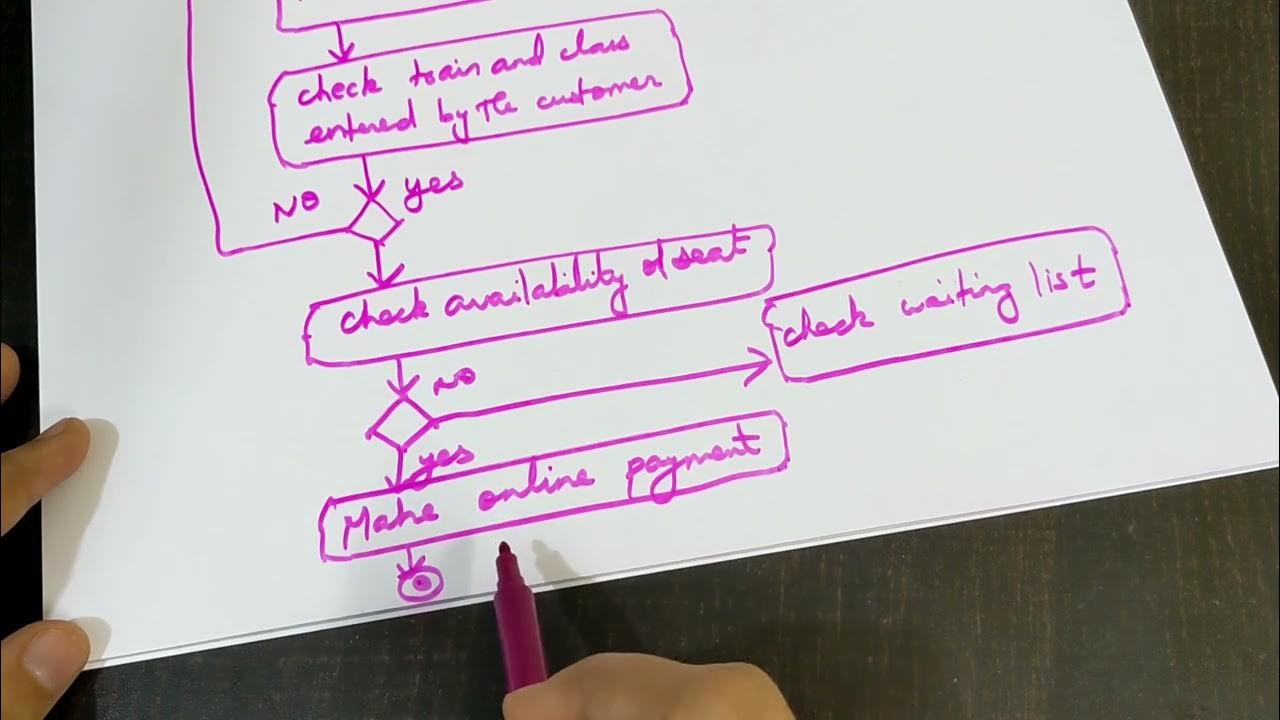 check train and class
entered by the customer
NO
yes
check availability of seat
check waiting list
NO
yes
Make online payment